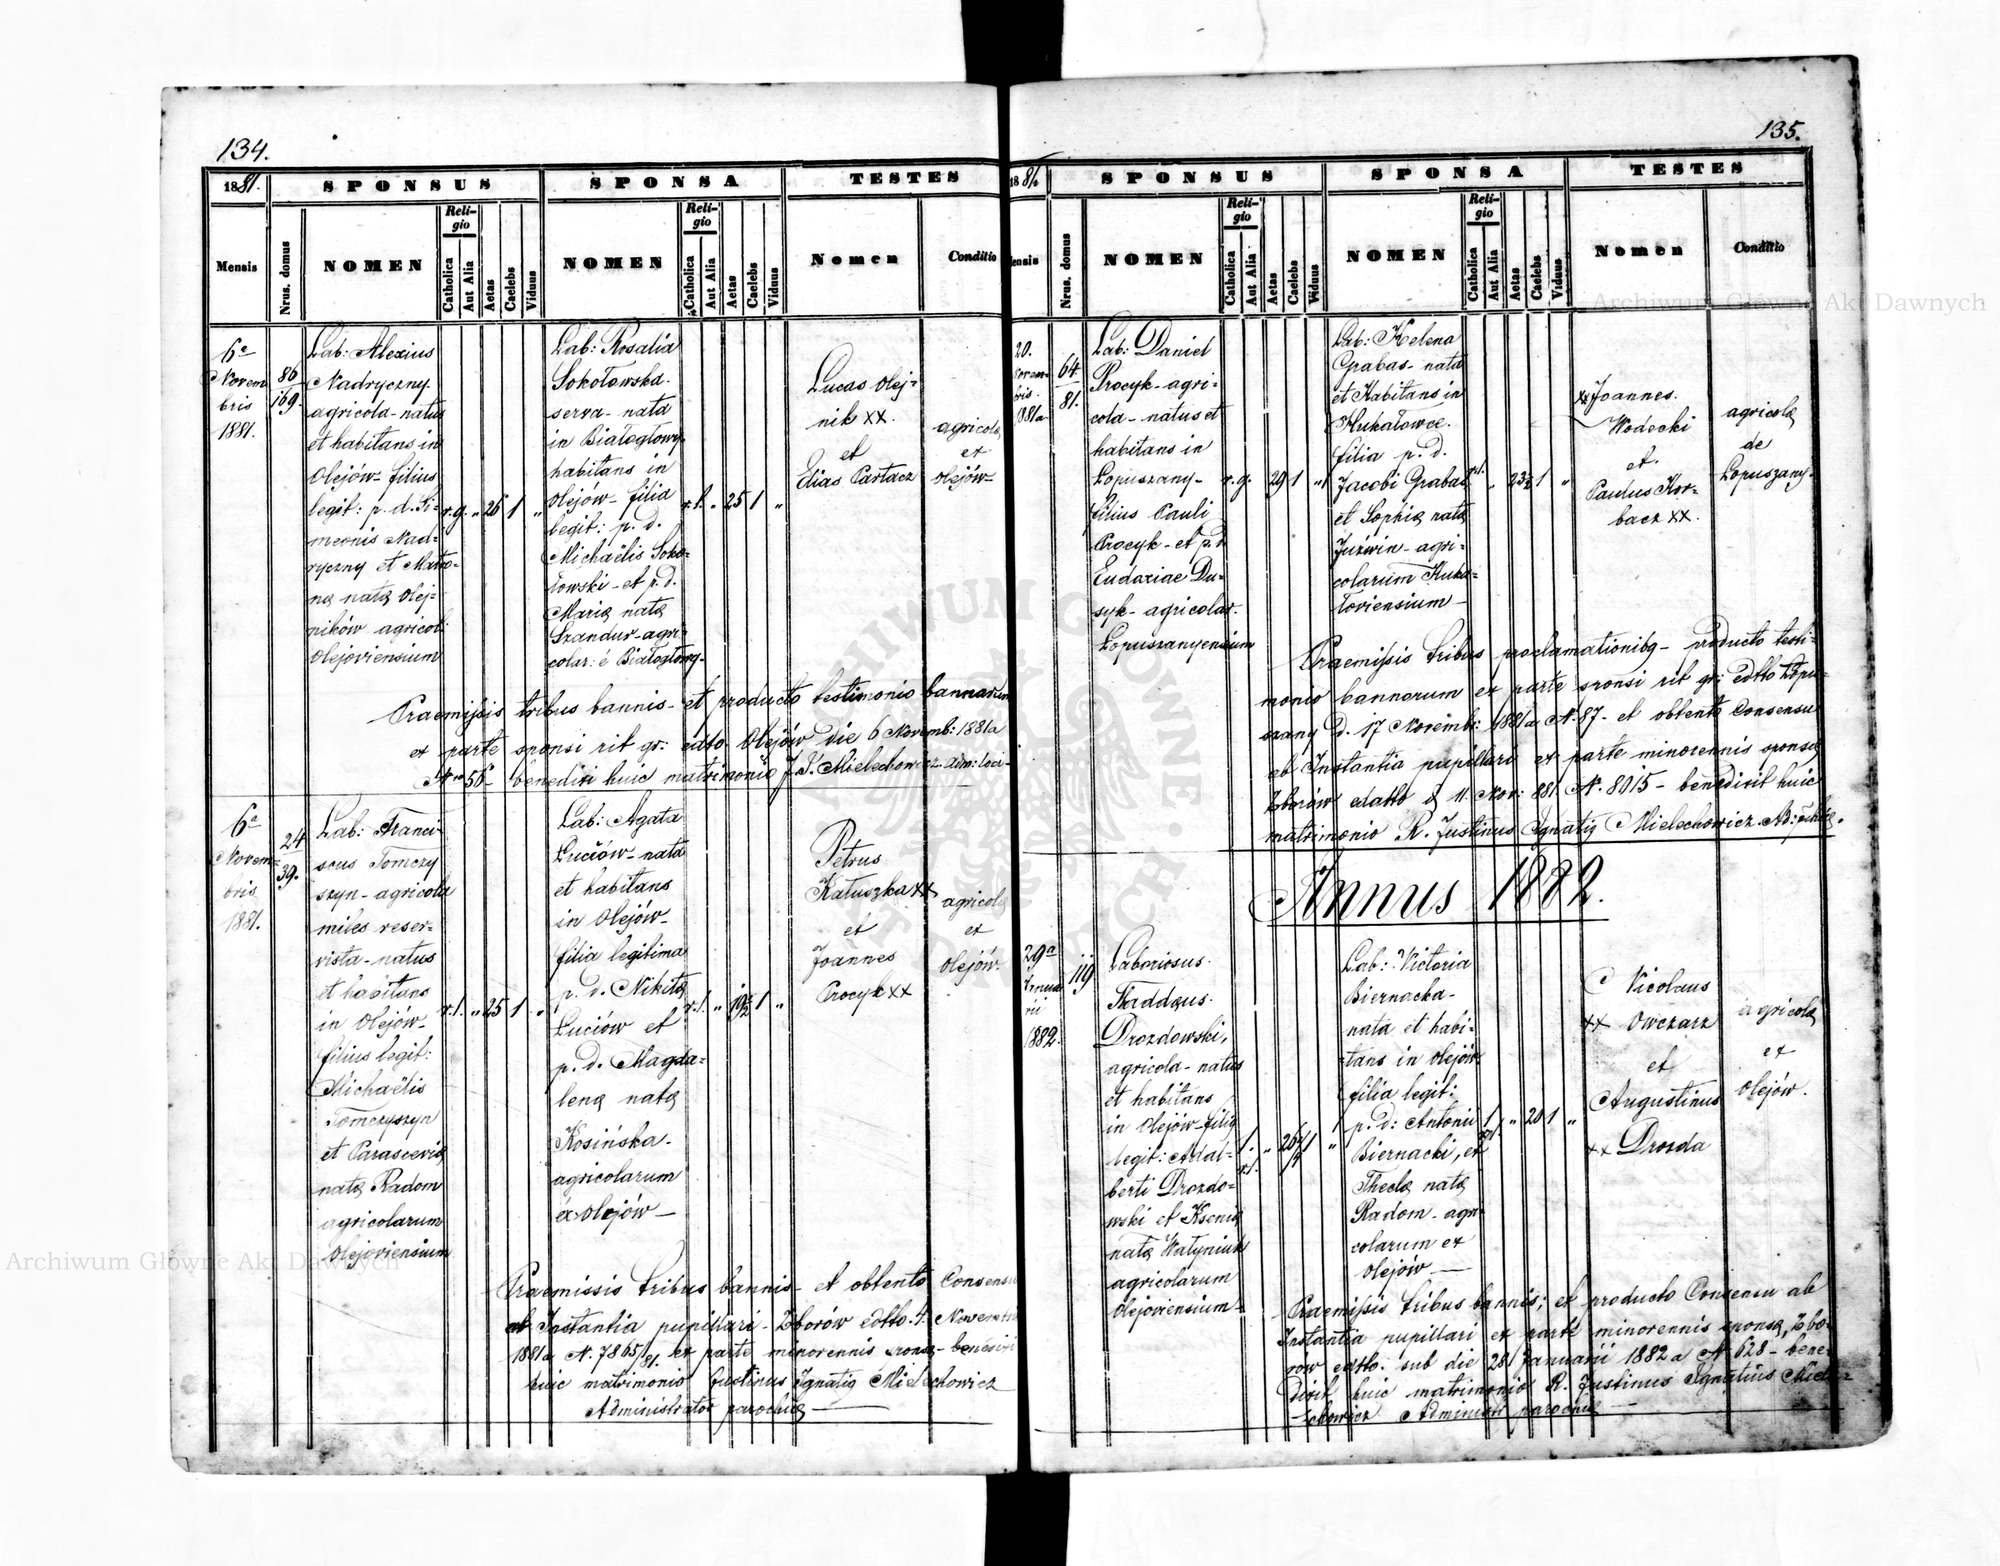 134.
1881.
SPONSUS
SPONSA
TESTES
Mensis
Nrus. domus
NOMEN
Religio
Catholica
Aut Alia
Aetas
Caelebs
Viduus
NOMEN
Religio
Catholica
Aut Alia
Aetas
Caelebs
Viduus
Nomen
Conditio
6a
Novem
bris
1881.
86
169.
Lab: Alexius
Nadryczny
agricola - natus
et habitans in
Olejów - filius
legit: p. d. Si=
meonis Nad=
ryczny et Mato=
na nata Olej=
ników agricol:
Olejoviensium
r.g. " 26 1 "
Lab: Rosalia
Sokołowska.
serva - nata
in Białogłowy
habitans in
Olejów - filia
legit: p. d.
Michaëlis Soko=
łowski - et p. d.
Maria nata
Szandur - agri=
colar: é Białogłowy.
r.l. " 25 1 "
Lucas Olej=
nik XX.
et
Elias Partacz
agricola
ex
Olejów
Praemissis tribus bannis - et producto testimonio bannorum
ex parte sponsi rit gr: edto. Olejów die 6 Novemb: 1881a
Nro 56 - benedixi huic matrimonio J. I. Mielechowicz - adm: loci -
6a
Novem=
bris
1881.
24
39.
Lab: Franci
scus Tomczy
szyn - agricola
miles reser=
vista - natus
et habitans
in Olejów -
filius legit:
Michaëlis
Tomczyszyn
et Parascevia
nata Radom
agricolarum
Olejoviensium
r.l. " 25 1 "
Lab: Agata
Łuciów - nata
et habitans
in Olejów -
filia legitima
p. d. Nikita
Łuciów et
p. d. Magda=
lena nata
Kosińska -
agricolarum
éx Olejów -
r.l. " 19½ 1 "
Petrus
Katuszka XX
et
Joannes
Procyk XX
agricola
ex
Olejów.
Praemissis tribus bannis - et obtento Consensu
ab Instantia pupillari - Zborów edtto. 4. Novembris
1881a N. 7865/81. ex parte minorennis sponsa - benedixi
huic matrimonio Justinus Ignatig Mielechowicz
Administrator parochia
135.
1881.
SPONSUS
SPONSA
TESTES
Mensis
Nrus. domus
NOMEN
Religio
Catholica
Aut Alia
Aetas
Caelebs
Viduus
NOMEN
Religio
Catholica
Aut Alia
Aetas
Caelebs
Viduus
Nomen
Conditio
20.
Novem=
bris.
1881a
64
81.
Lab: Daniel
Procyk - agri=
cola - natus et
habitans in
Łopuszany -
filius Pauli
Procyk - et p. d.
Eudoxiae Du=
syk - agricolar.
Łopuszanyensium
r.g. 29 1 "
Lab: Helena
Grabas - nata
et habitans in
Hukałowce.
filia p. d.
Jacobi Grabas
et Sophia nata
Juźwin - agri=
colarum Huka=
loviensium -
r.l. " 23½ 1 "
XX Joannes.
Wodecki
et.
Paulus Hor=
bacz XX.
agricola
de
Łopuszany.
Praemissis tribus proclamationibg - producto testi=
monio bannorum ex parte sponsi rit gr: edtto Łopu=
szany d. 17 Novemb: 1881a N. 87 - et obtento Consensu
ab Instantia pupillari ex parte minorennis sponsa
Zborów edatto d 11. Nov: 881. N. 8015 - benedixit huic
matrimonio R. Justinus Ignatig Mielechowicz
Annus 1882.
29a
Januarii
1882.
119
Laboriosus.
Thaddaus.
Drozdowski,
agricola - natus
et habitans
in Olejów - filig
legit: Adal=
berti Drozdo=
wski et Ksenia
nata Watyniuk
agricolarum
Olejoviensium -
Lab: Victoria
Biernacka -
nata et habi=
tans in Olejów
filia legit:
p. d: Antonii
Biernacki, et
Thecla nata
Radom - agri
colarum ex
Olejów -
" 20 1 "
Nicolaus
XX Owczarz
et
Augustinus
XX Drozda
agricola
ex
Olejów.
Praemissis tribus bannis; et producto Consensu ab
Instantia pupillari ex parte minorennis sponsa, Zbo=
row edtto. sub die 28 Januarii 1882a N. 628 - bene=
dixit huic matrimonio R. Justinus Ignatius Miele=
chowicz Administ: parochia
Archiwum Główne Akt Dawnych
Archiwum Główne Akt Dawnych
ARCHIWUM GŁÓWNE AKT DAWNYCH